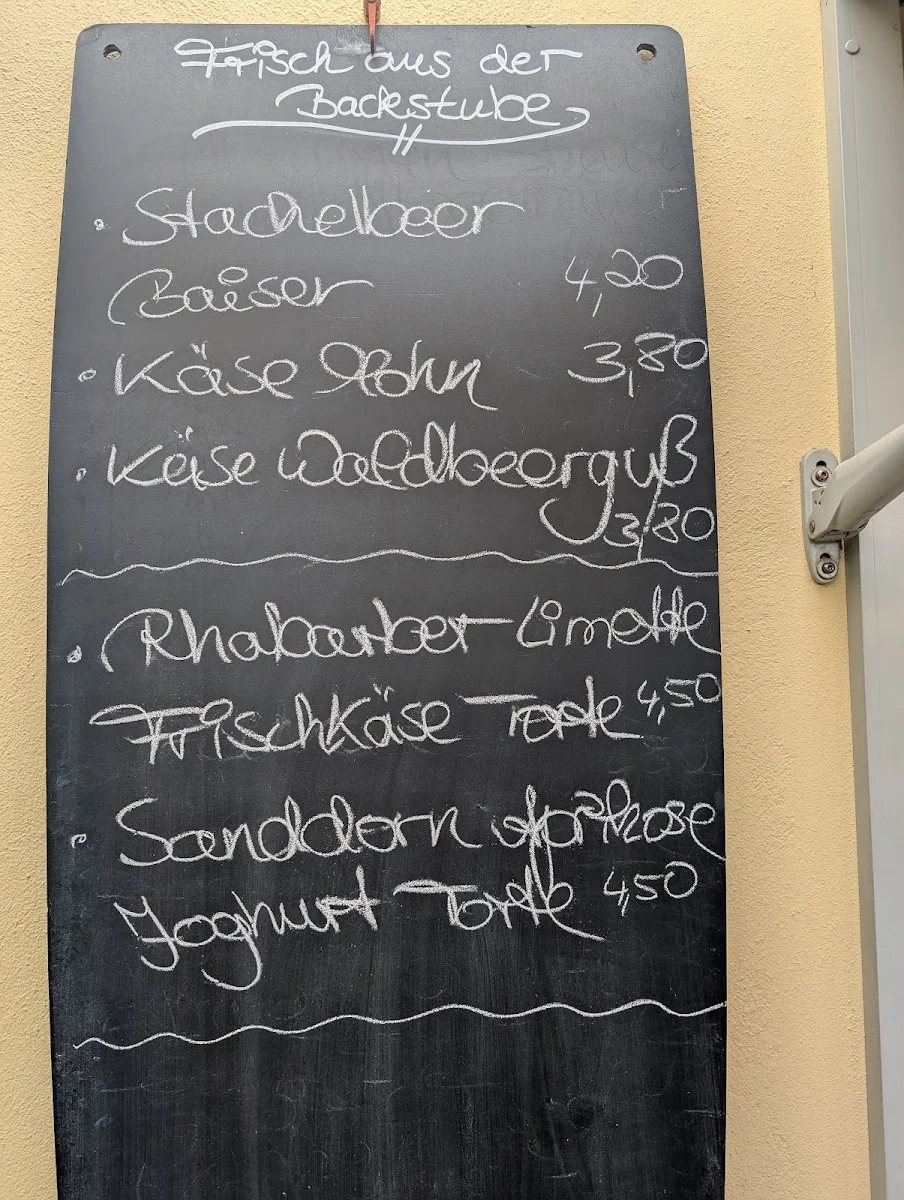 Frisch aus der
Backstube
• Stachelbeer
Baiser 4,20
• Käse Mohn 3,80
• Käse Waldbeerguß
3,80
• Rhabarber-Limette
Frischkäse Torte 4,50
• Sanddorn Aprikose
Joghurt Torte 4,50